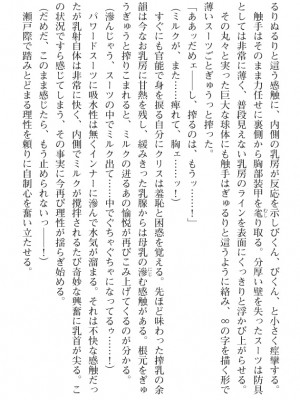 るりぬるりと這う感触に、内側の乳房が反応を示しびくん、びくん、と小さく痙攣する。
触手はそのまま力任せに裏側から胸部装甲を毟り取る。分厚い壁を失ったスーツは防具
としては非常に薄く、普段見えない乳房のラインを表面にくっきりと浮かび上がらせる。
その丸々と実った巨大な球体にも触手はぎゅるりと這うように絡み、∞の字を描く形で
薄いスーツごとぎゅうっと搾った。
「ああっだめェーし、搾るのは、もうッ……！」
（ミルクが、また……っ痺れて、胸ェ……ッ！）
すぐにも官能で身を捩る自分にクリスは羞恥と困惑を覚える。先ほど味わった搾乳の余
韻は今なお乳房に甘熱を残し、緩みきった乳腺からは母乳の滲む感触がある。根元をぎゅ
うぎゅうと搾りこまれると、ミルク の迸るあの愉悦が再びこみ上げてくるのが分かる。
（滲んじゃう、スーツの中でミルク出て、中でぐちゃぐちゃになってるゥ……ッ！）
パワードスーツに吸水性は無くインナーに滲んで水気が溜まる。それは不快な感触だっ
たが乳射自体は非常に快く、内側でミルクが攪拌されるたび奇妙な興奮に乳首が尖る。こ
の状況ですら感じてしまう、その事実に今再び理性が揺らぎ始める。
（だめだ、このまま感じたら、もう止められないっ――！）
瀬戸際で踏みとどまると理性を頼りに自制心を奮い立たせる。